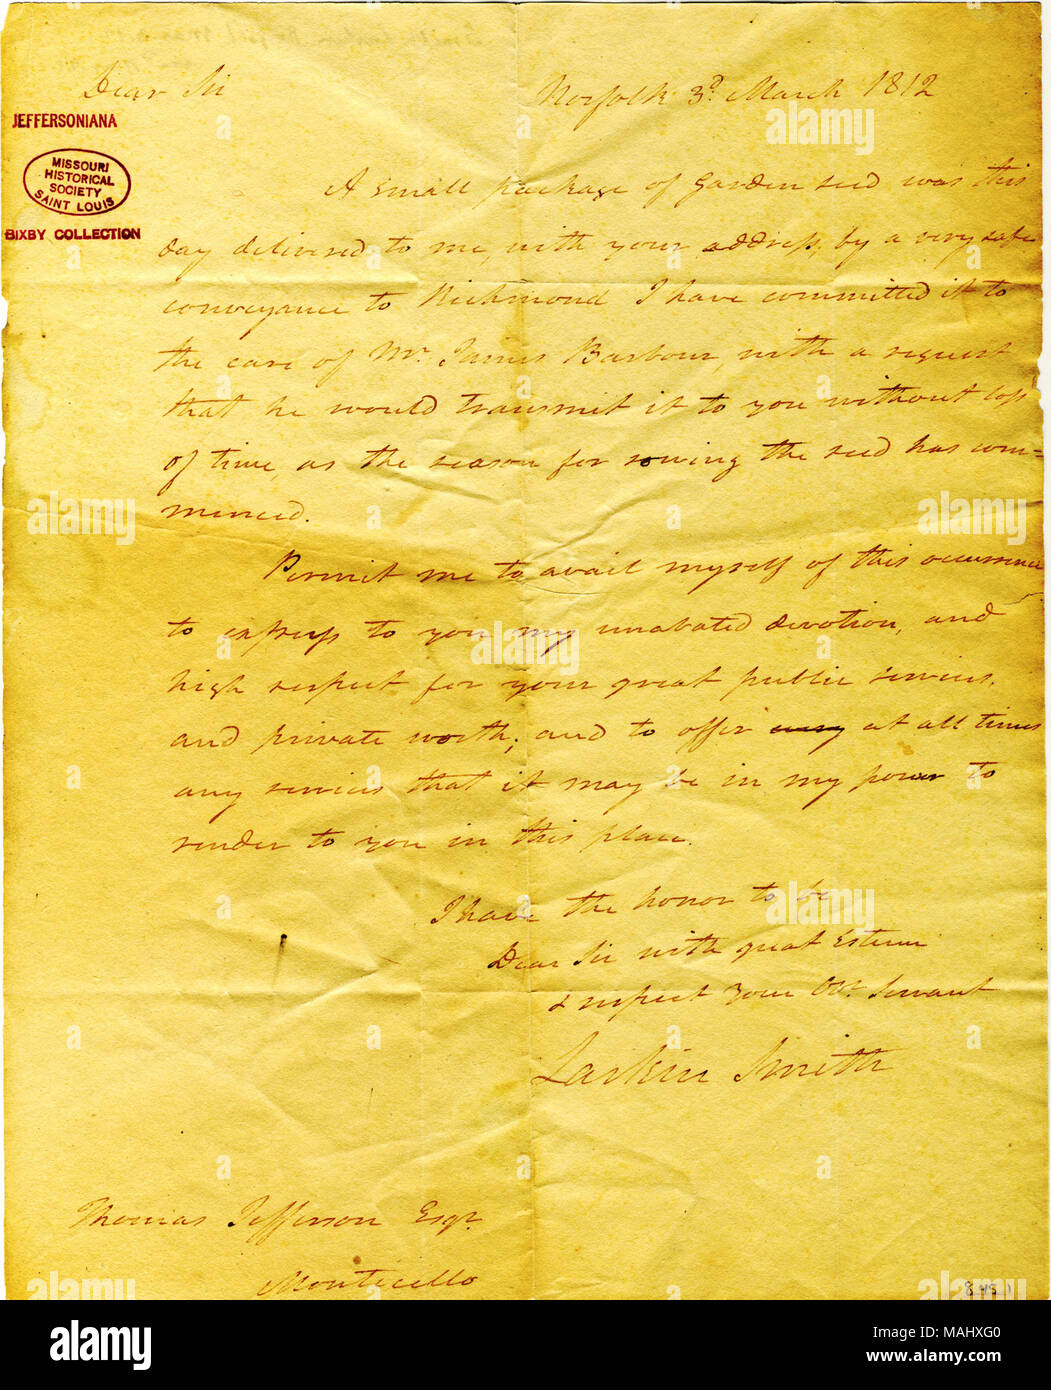 Dear Sir
Norfolk 3d. March 1812
JEFFERSONIANA
MISSOURI
HISTORICAL
SOCIETY
SAINT LOUIS
BIXBY COLLECTION
A small package of Garden seed was this
day delivered to me, with your address, by a very safe
conveyance to Richmond I have committed it to
the care of Mr. James Barbour, with a request
that he would transmit it to you without loss
of time, as the season for sowing the seed has com=
menced.
Permit me to avail myself of this occurrence
to express to you my unabated devotion, and
high respect for your great public services,
and private worth; and to offer at all times
any services that it may be in my power to
render to you in this place.
I have the honor to be
Dear Sir with great Esteem
& respect Your Obt. Servant
Larkin Smith
Thomas Jefferson Esqr.
Monticello
alamy
Image ID: MAHXG0
www.alamy.com